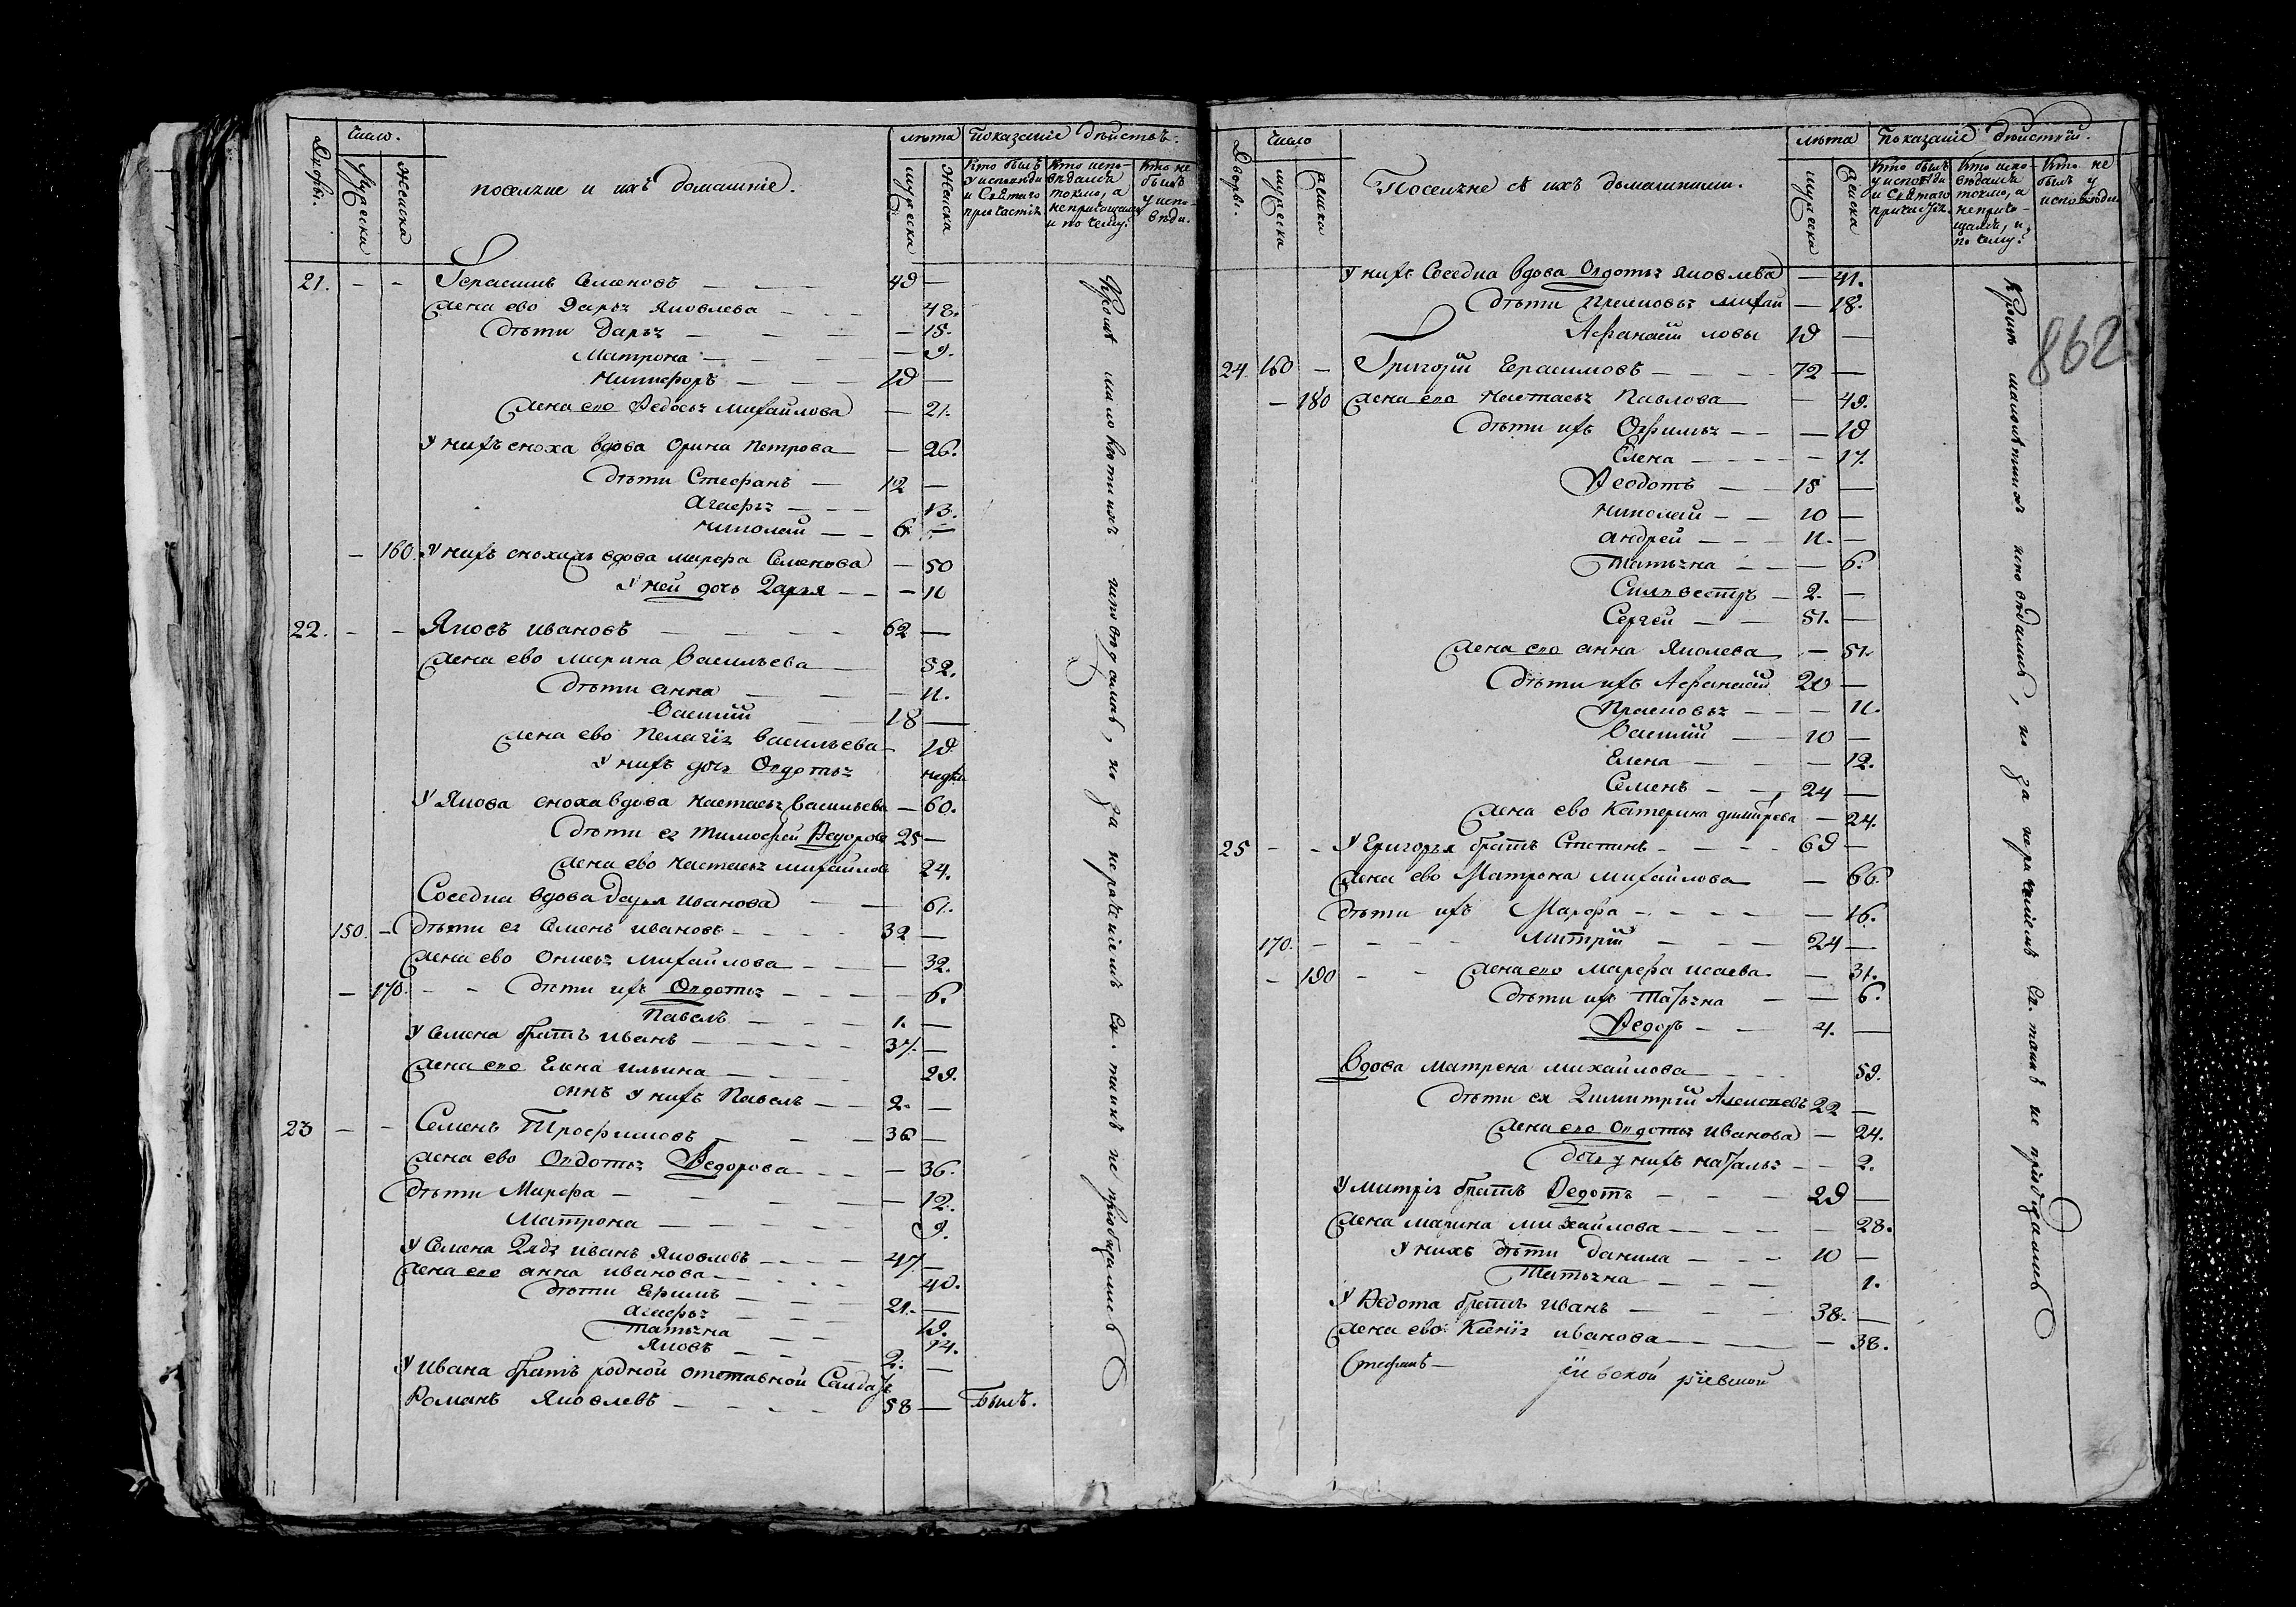 Дворы.
Число.
Мужеска
Женска
поселяне и ихъ домашніе.
лѣта
мужеска
Женска
Показаніе дѣйствъ.
Кто былъ у исповѣди и Святаго причастія
Кто исповѣдался токмо, а непричащался и по чему?
Кто не былъ у исповѣди.
21. - - Герасимъ Семеновъ - - 49 —
Жена ево Дарья Яковлева - - - 48.
Дѣти Дарья - - - — 15.
Матрона - - - — 9.
Никифоръ - - - 19 —
Жена ево Ѳедосья Михайлова — 21.
У нихъ сноха вдова Орина Петрова — 26.
Дѣти Стефанъ — 12 —
Агафья - - - 13.
Николай - - 6. —
— 160. У нихъ вдова Марфа Семенова — 50
У ней дочь Дарья - - — 11
22. - - Яковъ Ивановъ - - - 62 —
Жена ево Марина Васильева — 52.
Дѣти Анна - - — 11.
Василій - - 18 —
Жена ево Пелагія Васильева — 19
У нихъ дочь Овдотья недѣли
У Якова сноха вдова Настасья Васильева — 60.
Дѣти ея Тимофей Ѳедоровъ 25 —
Жена ево Настасья Михайлова 24.
Соседка вдова Дарья Иванова - — 61.
150. - Дѣти ея Семенъ Ивановъ - - - 32 —
Жена ево Михайлова - - — 32.
— 170. - - Дѣти ихъ Овдотья - - — 6.
Павелъ - - - 1. —
У Семена братъ Иванъ - - - 37. —
Жена ево Елена Ильина - - - 29.
сынъ у нихъ Павелъ - - 2. —
23 - - Семенъ Трофимовъ - - - 36 —
Жена ево Овдотья Ѳедорова - - — 36.
Дѣти Марфа - - - — 12.
Матрона - - - 9.
У Семена дядя Иванъ Яковлевъ - - - 47. —
Жена ево Анна Иванова - - - 40.
Дѣти Ефимъ - - - 21. —
Агафья - - - 19.
Татьяна - - 14.
Яковъ - - - 2. —
У Ивана братъ родной отставной Салдатъ
Романъ Яковлевъ - - - 58 — Былъ.
Кромѣ малолѣтнихъ исповѣдались, но за нераченіемъ Св. таинъ не пріобщались
Дворы.
Число
мужеска
женска
Поселяне съ ихъ домашними.
лѣта
мужеска
женска
Показаніе дѣйствій.
Кто былъ у исповѣди и Святаго причастія.
Кто исповѣдался токмо, а непричащался, и по чему?
Кто не былъ у исповѣди
862
У нихъ Соседка вдова Овдотья Яковлева — 41.
Дѣти Прасковья Михай — 18.
Афанасій ловы 19 —
24. 160 - Григорій Герасимовъ - - - 72 —
— 180 Жена ево Настасья Павлова — 49.
Дѣти ихъ Офимья - - — 19
Елена - - - — 17.
Ѳеодотъ - - 15 —
Николай - - 10 —
Андрей - - - 11. —
Татьяна - - — 6.
Силвестръ - 2. —
Сергей - - 51. —
Жена ево Анна Яковлева — 51.
Дѣти ихъ Афанасій 20 —
Прасковья - - — 11.
Василій - - 10 —
Елена - - — 12.
Семенъ - - 24 —
Жена ево Катерина — 24.
25 - - У Григорья братъ - - - 69 —
Жена ево Матрона Михайлова — 66.
Дѣти ихъ Марфа - - - — 16.
170. - - - Митрій - - - 24 —
— 190 - - Жена ево Марфа Исаева — 31.
Дѣти ихъ Татьяна - — 6.
Ѳедоръ - - 4. —
Вдова Матрена Михайлова - - - 59.
Дѣти ея Димитрій Алексѣевъ 22 —
Жена ево Овдотья Иванова — 24.
дочь у нихъ Наталья - — 2.
У Митрія братъ Ѳедотъ - - - 29 —
Жена Марина Михайлова - - - — 28.
У нихъ дѣти Данила - - 10 —
Татьяна - - - 1.
У Ѳедота братъ Иванъ - - - 38. —
Жена ево Ксенія Иванова - — 38.
Стефанъ -
Кромѣ малолѣтнихъ исповѣдались, но за нераченіемъ Св. таинъ не пріобщались